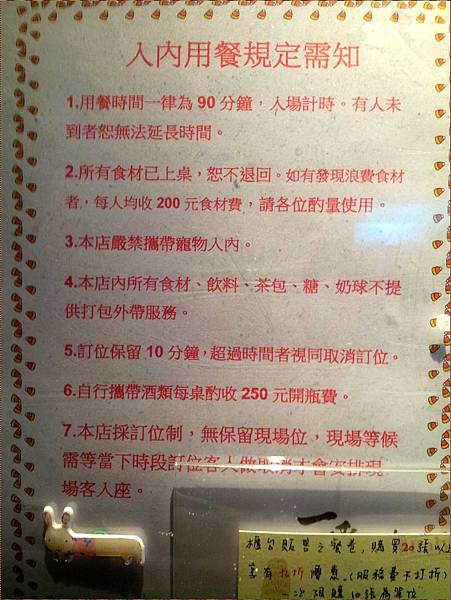 入內用餐規定需知
1.用餐時間一律為 90 分鐘，入場計時。有人未
到者恕無法延長時間。
2.所有食材已上桌，恕不退回。如有發現浪費食材
者，每人均收 200 元食材費，請各位酌量使用。
3.本店嚴禁攜帶寵物入內。
4.本店內所有食材、飲料、茶包、糖、奶球不提
供打包外帶服務。
5.訂位保留 10 分鐘，超過時間者視同取消訂位。
6.自行攜帶酒類每桌酌收 250 元開瓶費。
7.本店採訂位制，無保留現場位，現場等候
需等當下時段訂位客人做取消才會安排現
場客入座。
櫃台販售之餐卷，購買20張以上
享有 優惠.(服務費不打折)
一次限購10張為單位